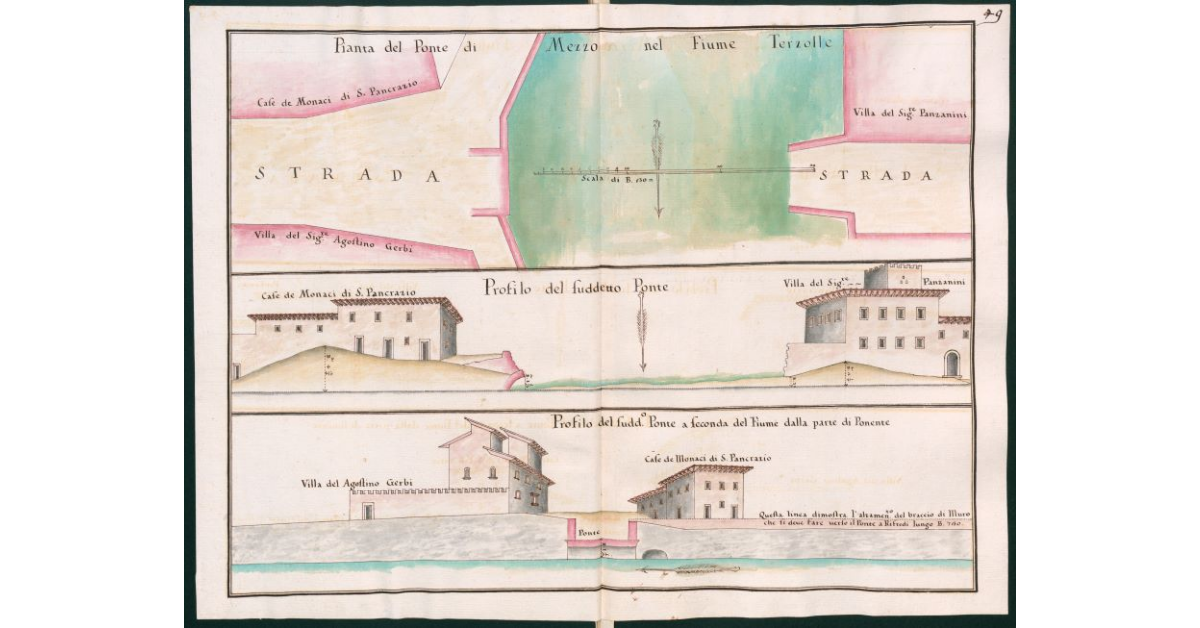 49
Pianta del Ponte di Mezzo nel Fiume Terzolle
Case de Monaci di S. Pancrazio
Villa del Sig.re Panzanini
STRADA
Scala di B. 130
STRADA
Villa del Sig.re Agostino Gerbi
Profilo del suddetto Ponte
Case de Monaci di S. Pancrazio
Villa del Sig.re Panzanini
Profilo del sudd.o Ponte a seconda del Fiume dalla parte di Ponente
Case de Monaci di S. Pancrazio
Villa del Agostino Gerbi
Questa linea dimostra l'altamen.to del braccio di Muro
che si deve fare verso il Ponte a Rifredi lungo B.
Ponte